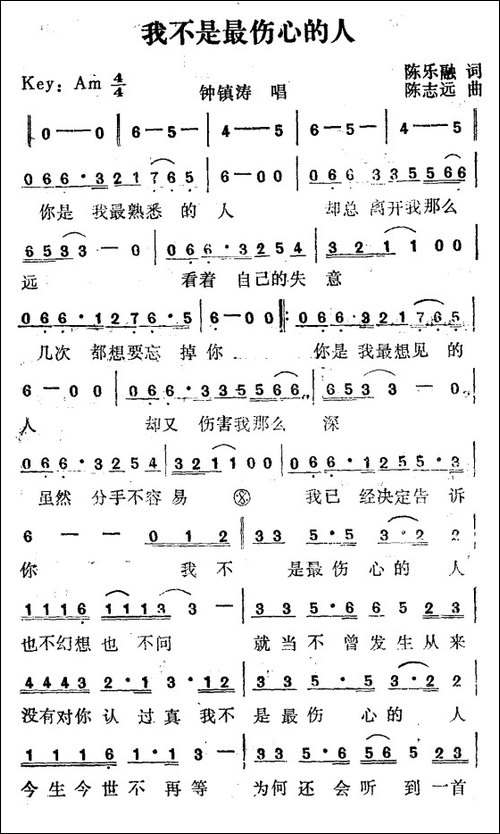 我不是最伤心的人
Key：Am 4/4
钟镇涛 唱
陈乐融 词
陈志远 曲
0——0 6—5— 4—5 6—5— 4—5
066·321765 6—00 066335566
你是 我最熟悉 的 人 却总 离开我那么
6533—0 066·3254 321100
远 看着 自己的失 意
066·1276·5 6—00 066·321765
几次 都想要忘 掉你 你是我最想见 的
6—00 066·335566 6533—0
人 却又 伤害我那么 深
066·3254 321100 066·1255·3
虽然 分手不容 易 我已 经决定告 诉
6——012 335·53·22
你 我 不 是最伤心的 人
1116 11133— 335·66523
也不幻想也 不问 就当不 曾发生从来
44432·13·12 335·53·22
没有对你认 过真 我不 是最伤 心的 人
11161·13— 335·656523
今生今世不 再等 为何还 会听 到一首